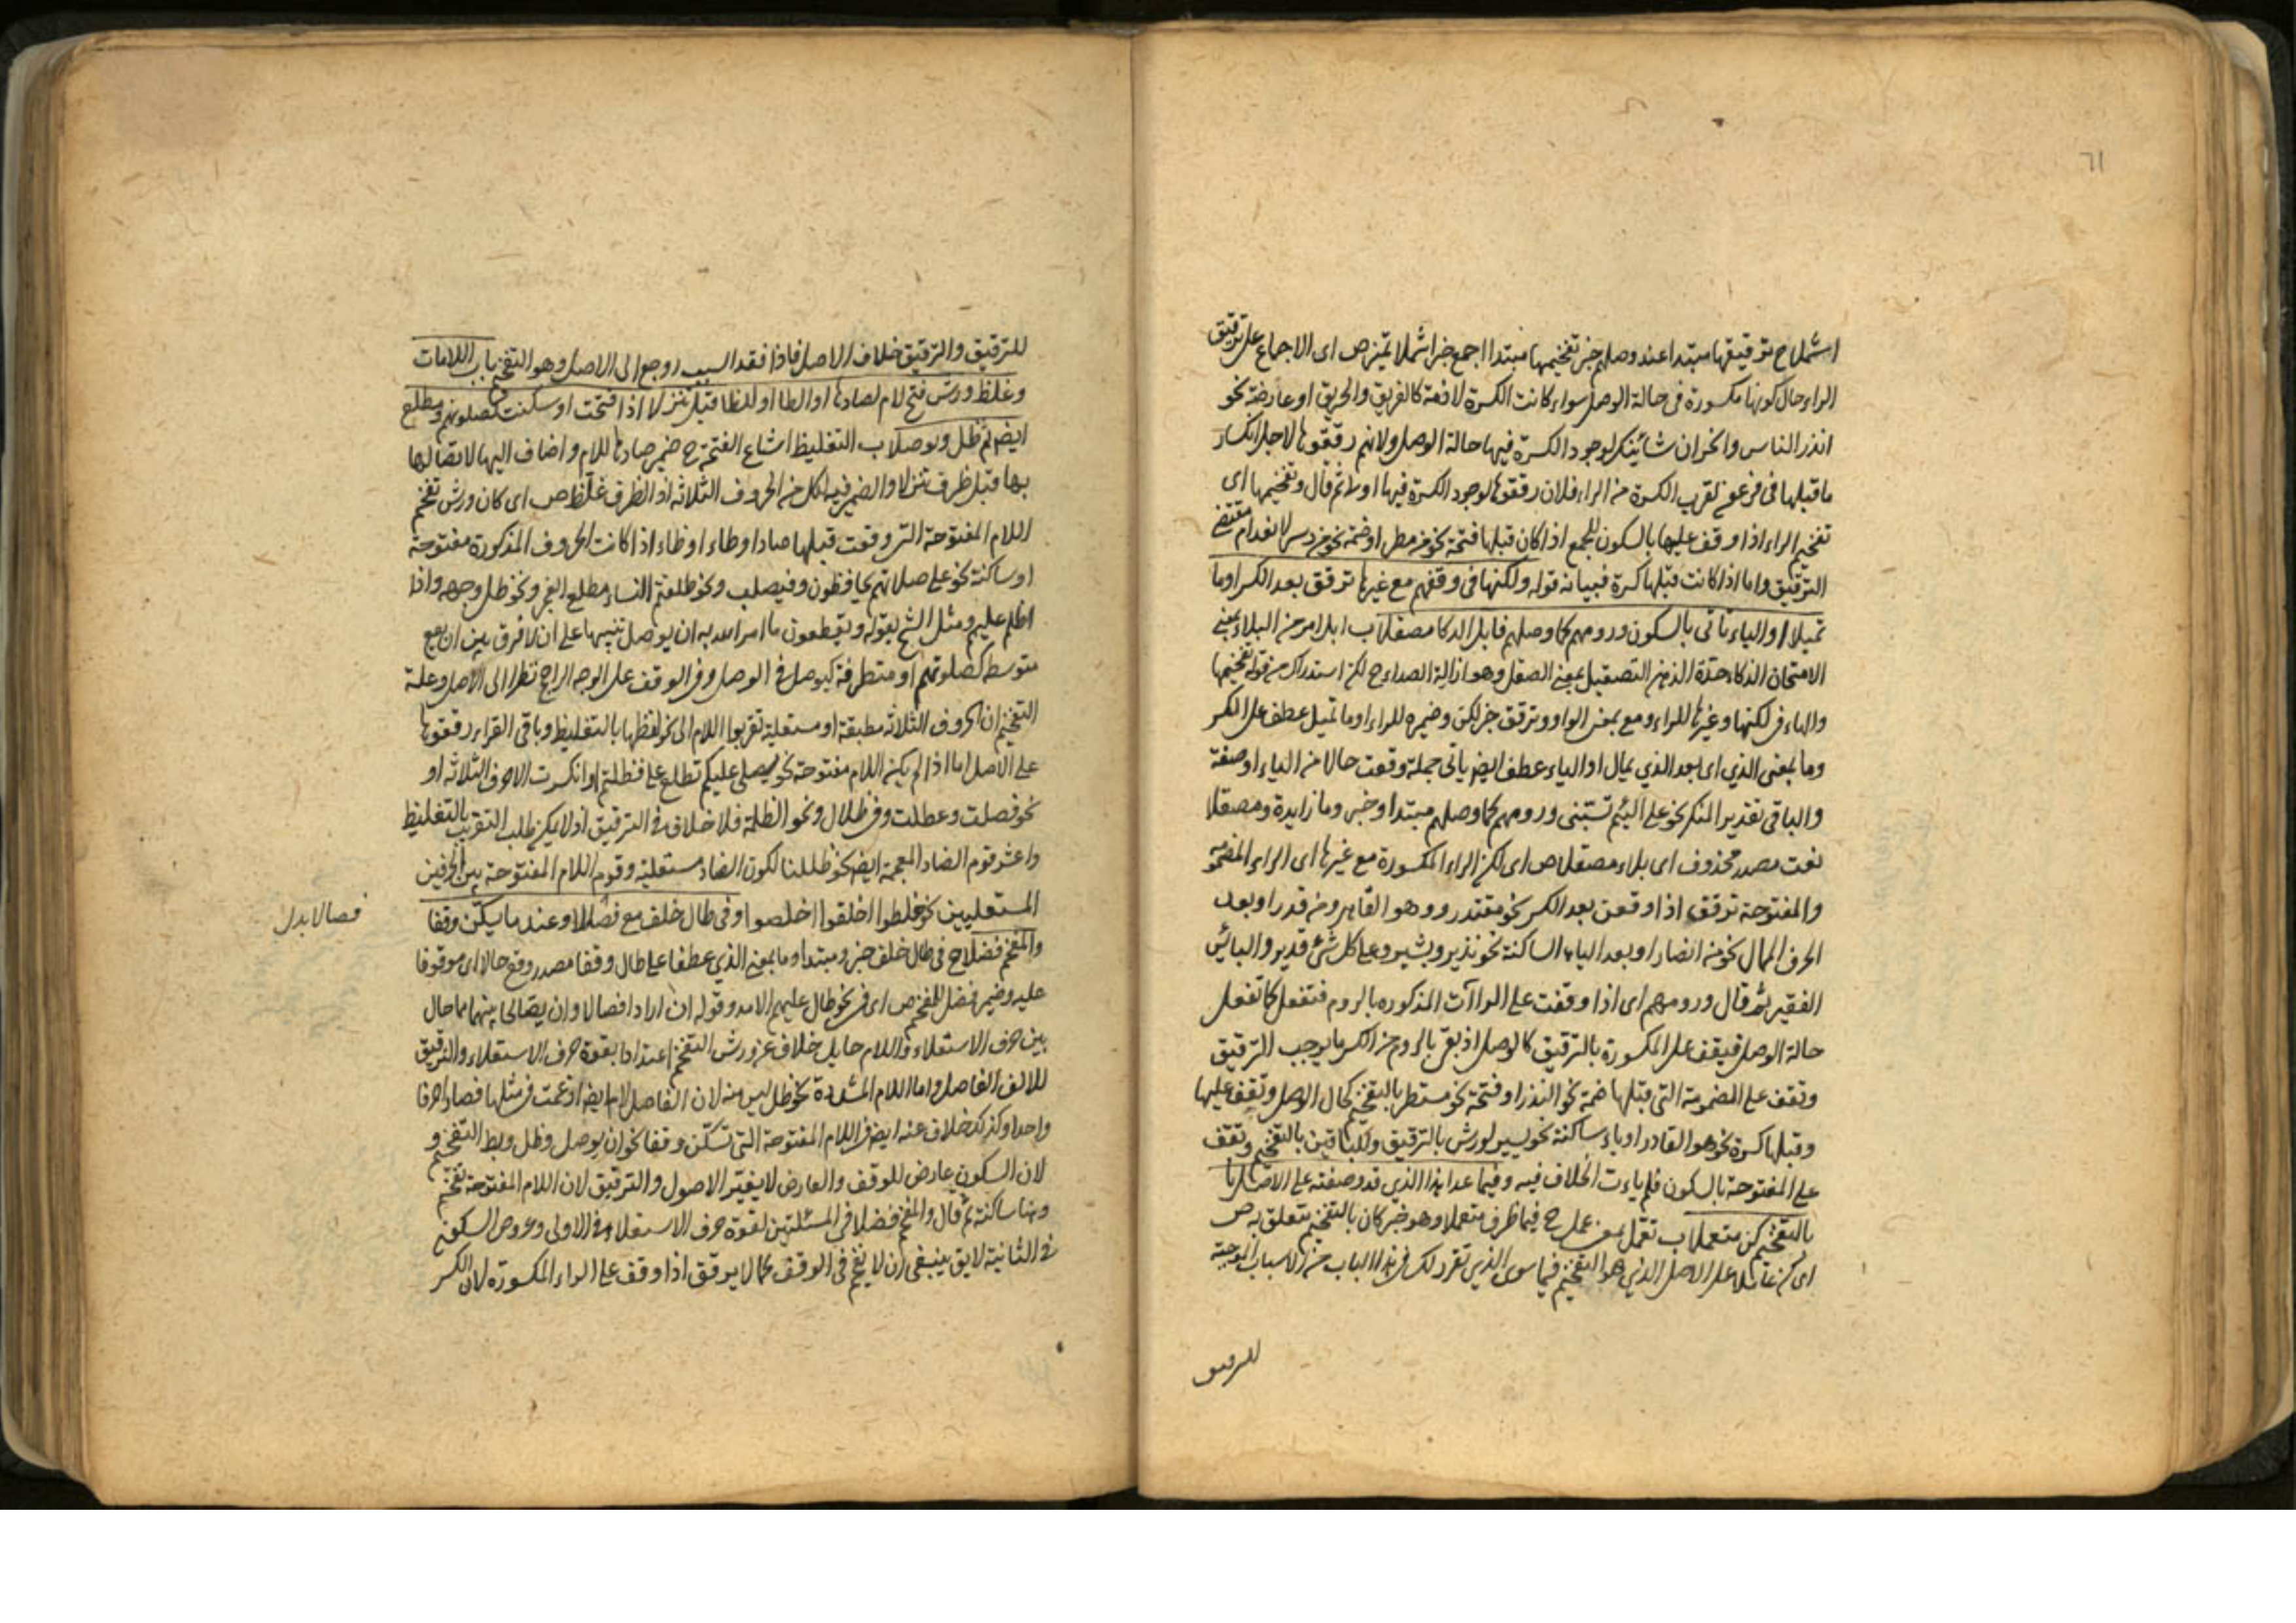 ٦١
اشملا ح ترقيقها مبتدا عند وصلهم خبر تفخيمها مبتدا اجمع خبر اشملا تميز ص اى الاجماع على ترقيق
الراء حال كونها مكسورة فى حالة الوصل سواء كانت الكسرة لازمة كالفريق والحريق او عارضة نحو
انذر الناس وانحر ان شانئك لوجود الكسرة فيها حالة الوصل ولانهم رققوها لاجل انكسار
ما قبلها فى فرعون لقرب الكسرة من الراء فلان رققوها لوجود الكسرة فيها اولا ثم قال وتفخيمها اى
تفخيم الراء اذا وقف عليها بالسكون للجمع اذا كان قبلها فتحة نحو من مطر او ضمة نحو من دسر لانعدام مقتضى
الترقيق واما اذا كانت قبلها كسرة فبيانه قوله ولكنها فى وقفهم مع غيرها ترقق بعد الكسر اوما
تميلا او الياء تاتى بالسكون ورومهم كما وصلهم فابل الذكا مصقلا ب ابلا امر من البلاء بمعنى
الامتحان الذكاء حدة الذهن التصقيل بمعنى الصقل وهو ازالة الصداء ح لكن استدراك من قوله تفخيمها
والهاء فى لكنها وغيرها للراء ومع بمعنى الواو وترقق خبر لكن وضميره للراء اوما تميل عطف على الكسر
وما بمعنى الذي اى بعد الذي يمال او الياء عطف ايضا ياتى جملة وقعت حالا من الياء او صفة
والباقى تقدير المنكر نحو على اليم تستبنى ورومهم كما وصلهم مبتدا وخبر وما زايدة ومصقلا
نعت مصدر محذوف اى بلاء مصقلا ص اى لكن الراء المكسورة مع غيرها اى الراء المضمومة
والمفتوحة ترقق اذا وقعن بعد الكسر نحو مقتدر وهو القاهر ومن قدر او بعد
الحرف الممال نحو من انصار او بعد الياء الساكنة نحو نذير وبشير وعلى كل شئ قدير والبائس
الفقير ثم قال ورومهم اى اذا وقفت على الراآت المذكوره بالروم فتفعل كما تفعل
حالة الوصل فيقف على المكسورة بالترقيق كالوصل اذ بقى بالروم من الكسر ما يوجب الترقيق
وتقف على المضمومة التى قبلها ضمة نحو النذر او فتحة نحو مستطر بالتفخيم كحال الوصل وتقف عليها
وقبلها كسرة نحو هو القادر او ياء ساكنة نحو يسير لورش بالترقيق وللباقين بالتفخيم وتقف
على المفتوحة بالسكون فلم ياءت الخلاف فيه وفيما عدا هذا الذي قد وصفته على الاصل
بالتفخيم كن متعملا ب تعمل بمعنى عمل ح فيما ظرف متعملا وهو خبر كان بالتفخيم متعلق به ص
اى كن عاملا على الاصل الذي هو التفخيم فيما سوى الذي تقرر لك فى هذا الباب من الاسباب الموجبة
للترقيق
للترقيق والترقيق خلاف الاصل فاذا فقد السبب رجع الى الاصل وهو التفخيم باب اللامات
وغلظ ورش فتح لام لصادها او الطا او للظا قبل تنزلا اذا فتحت او سكنت كصلوتهم ومطلع
ايضا ثم ظل ويوصلا ب التغليظ اشباع الفتحة ح ضمير صادها للام واضاف اليها لاتصالها
بها قبل ظرف تنزلا والضمير فيه لكل من الحروف الثلاثة اذا لظرف غلظ ص اى كان ورش تفخم
اللام المفتوحة التى وقعت قبلها صاد او طاء او ظاء اذا كانت الحروف المذكورة مفتوحة
او ساكنة نحو على صلاتهم يحافظون وفيصلب ونحو طلقتم النساء ومطلع الفجر ونحو ظل وجهه واذا
اظلم عليهم ومثل الشيخ بقوله ويقطعون ما امر الله به ان يوصل تنبيها على ان لا فرق بين ان يقع
متوسط كصلوتهم او متطرفة كيوصل فى الوصل وفى الوقف على الوجه الراجح نظرا الى الاصل وعلة
التفخيم ان الحروف الثلاثة مطبقة او مستعلية تقربوا اللام الى نحو لفظها بالتغليظ وباقى القراء رققوها
على الاصل اما اذا لم يكن اللام مفتوحة نحو يصلى عليكم تطلع على فظلتم او انكسرت الاحرف الثلاثة او
نحو فصلت وعطلت وفى ظلال ونحو الظلمة فلا خلاف فى الترقيق اذ لا يمكن طلب التقريب بالتغليظ
واعتبر قوم الضاد المعجمة ايضا نحو ظللنا لكون الضاد مستعلية وقوم اللام المفتوحة بين الحرفين
المستعليين نحو خلطوا اخلقوا اخلصوا وفى طال خلف مع فصالا وعندما يسكن وقفا
والمفخم فضلا ح فى طال خلف خبر ومبتدا وما بمعنى الذي عطفا على طال وقفا مصدر وقع حالا اى موقوفا
عليه وضمير فضل للمفخم ص اى فى نحو طال عليهم الامد وقوله ان ارادا فصالا وان يصالحا بينهما مما حال
بين حرف الاستعلاء واللام حايل خلاف عن ورش التفخيم اعتدادا بقوة حرف الاستعلاء والترقيق
للالف الفاصل واما اللام المشددة نحو ظل ليس منه لان الفاصل لام ايضا ادغمت فى مثلها فصارا حرفا
واحدا وكذلك خلاف عنه ايضا فى اللام المفتوحة التى تسكن وقفا نحو ان يوصل وظل وبطل التفخيم و
لان السكون عارض للوقف والعارض لا يغير الاصول والترقيق لان اللام المفتوحة تفخم
وهنا ساكنة ثم قال والمفخم فضلا فى المسئلتين لقوة حرف الاستعلاء فى الاولى وعروض السكون
فى الثانية لا يق ينبغى ان لا تفخم فى الوقف كما لا يرقق اذا وقف على الراء المكسورة لان الكسر
فصالا بدل